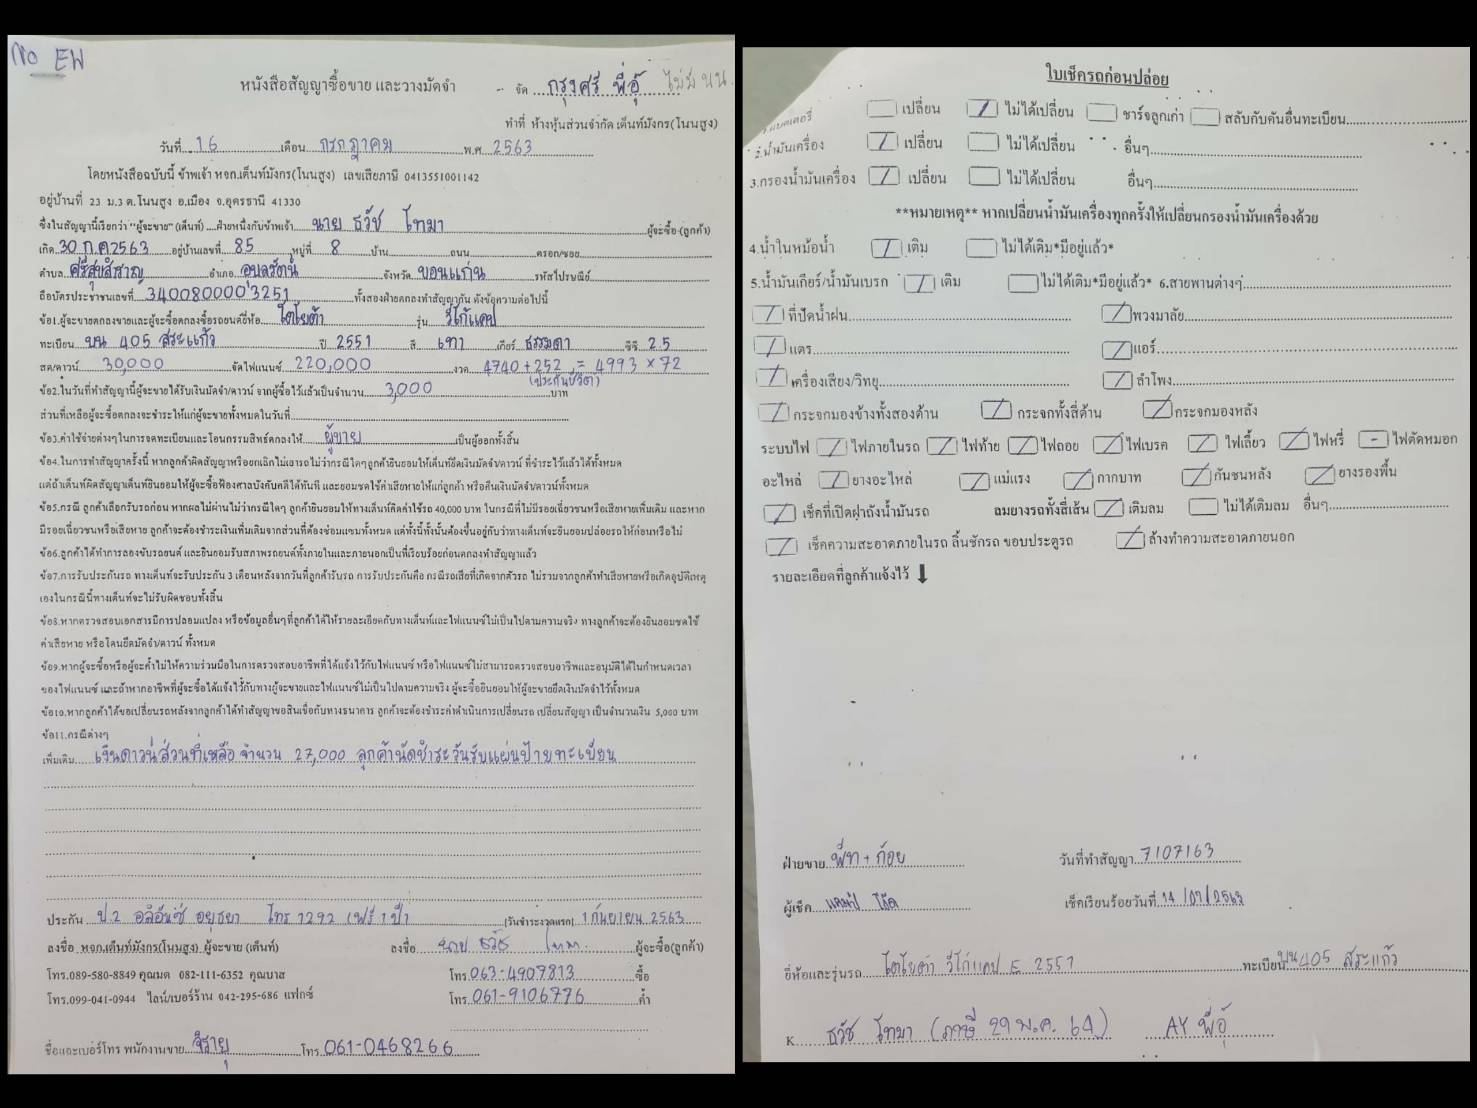 No EW
หนังสือสัญญาซื้อขาย และวางมัดจำ
จัด กรุงศรี พี่อุ้ ไม่มี นน.
ทำที่ ห้างหุ้นส่วนจำกัด เต็นท์มังกร(โนนสูง)
วันที่ 16 เดือน กรกฎาคม พ.ศ 2563
โดยหนังสือฉบับนี้ ข้าพเจ้า หจก.เต็นท์มังกร(โนนสูง) เลขเสียภาษี 0413551001142
อยู่บ้านที่ 23 ม.3 ต.โนนสูง อ.เมือง จ.อุดรธานี 41330
ซึ่งในสัญญานี้เรียกว่า "ผู้จะขาย" (เต็นท์) ฝ่ายหนึ่งกับข้าพเจ้า นาย ธวัช โทมา ผู้จะซื้อ (ลูกค้า)
เกิด 30 ก.ค 2563 อยู่บ้านเลขที่ 85 หมู่ที่ 8 บ้าน ถนน ตรอก/ซอย
ตำบล ศรีสุขสำราญ อำเภอ อุบลรัตน์ จังหวัด ขอนแก่น รหัสไปรษณีย์
ถือบัตรประชาชนเลขที่ 3400800003251 ทั้งสองฝ่ายตกลงทำสัญญากัน ดังข้อความต่อไปนี้
ข้อ1.ผู้จะขายตกลงขายและผู้จะซื้อตกลงซื้อรถยนต์ยี่ห้อ โตโยต้า รุ่น วีโก้แคป
ทะเบียน บน 405 สระแก้ว ปี 2551 สี เทา เกียร์ ธรรมดา ซีซี 2.5
สด/ดาวน์ 30,000 จัดไฟแนนซ์ 220,000 งวด 4740+252 = 4993 × 72
(ประกันชีวิต)
ข้อ2.ในวันที่ทำสัญญานี้ผู้จะขายได้รับเงินมัดจำ/ดาวน์ จากผู้ซื้อไว้แล้วเป็นจำนวน 3,000 บาท
ส่วนที่เหลือผู้จะซื้อตกลงจะชำระให้แก่ผู้จะขายทั้งหมดในวันที่
ข้อ3.ค่าใช้จ่ายต่างๆในการจดทะเบียนและโอนกรรมสิทธิ์ตกลงให้ ผู้ขาย เป็นผู้ออกทั้งสิ้น
ข้อ4.ในการทำสัญญาครั้งนี้ หากลูกค้าผิดสัญญาหรือยกเลิกไม่เอารถ ไม่ว่ากรณีใดๆลูกค้ายินยอมให้เต็นท์ยึดเงินมัดจำ/ดาวน์ ที่ชำระไว้แล้วได้ทั้งหมด
แต่ถ้าเต็นท์ผิดสัญญาเต็นท์ยินยอมให้ผู้จะซื้อฟ้องศาลบังคับคดีได้ทันที และยอมชดใช้ค่าเสียหายให้แก่ลูกค้า หรือคืนเงินมัดจำ/ดาวน์ทั้งหมด
ข้อ5.กรณี ลูกค้าเลือกรับรถก่อน หากผลไม่ผ่านไม่ว่ากรณีใดๆ ลูกค้ายินยอมให้ทางเต็นท์คิดค่าใช้รถ 40,000 บาท ในกรณีที่ไม่มีรอยเฉี่ยวชนหรือเสียหายเพิ่มเติม และหาก
มีรอยเฉี่ยวชนหรือเสียหาย ลูกค้าจะต้องชำระเงินเพิ่มเติมจากส่วนที่ต้องซ่อมแซมทั้งหมด แต่ทั้งนี้ทั้งนั้นต้องขึ้นอยู่กับว่าทางเต็นท์จะยินยอมปล่อยรถให้ก่อนหรือไม่
ข้อ6.ลูกค้าได้ทำการลองขับรถยนต์ และยินยอมรับสภาพรถยนต์ทั้งภายในและภายนอกเป็นที่เรียบร้อยก่อนตกลงทำสัญญาแล้ว
ข้อ7.การรับประกันรถ ทางเต็นท์จะรับประกัน 3 เดือนหลังจากวันที่ลูกค้ารับรถ การรับประกันคือ กรณีรถเสียที่เกิดจากตัวรถ ไม่รวมจากลูกค้าทำเสียหายหรือเกิดอุบัติเหตุ
เองในกรณีนี้ทางเต็นท์จะไม่รับผิดชอบทั้งสิ้น
ข้อ8.หากตรวจสอบเอกสารมีการปลอมแปลง หรือข้อมูลอื่นๆที่ลูกค้าได้ให้รายละเอียดกับทางเต็นท์และไฟแนนซ์ไม่เป็นไปตามความจริง ทางลูกค้าจะต้องยินยอมชดใช้
ค่าเสียหาย หรือโดนยึดมัดจำ/ดาวน์ ทั้งหมด
ข้อ9.หากผู้จะซื้อหรือผู้จะค้ำไม่ให้ความร่วมมือในการตรวจสอบอาชีพที่ได้แจ้งไว้กับไฟแนนซ์ หรือไฟแนนซ์ไม่สามารถตรวจสอบอาชีพและอนุมัติได้ในกำหนดเวลา
ของไฟแนนซ์ และถ้าหากอาชีพที่ผู้จะซื้อได้แจ้งไว้กับทางผู้จะขายและไฟแนนซ์ไม่เป็นไปตามความจริง ผู้จะซื้อยินยอมให้ผู้จะขายยึดเงินมัดจำไว้ทั้งหมด
ข้อ10.หากลูกค้าได้ขอเปลี่ยนรถหลังจากลูกค้าได้ทำสัญญาขอสินเชื่อกับทางธนาคาร ลูกค้าจะต้องชำระค่าดำเนินการเปลี่ยนรถ เปลี่ยนสัญญา เป็นจำนวนเงิน 5,000 บาท
ข้อ11.กรณีต่างๆ
เพิ่มเติม เงินดาวน์ส่วนที่เหลือ จำนวน 27,000 ลูกค้านัดชำระวันรับแผ่นป้ายทะเบียน
ประกัน ป.2 อลิอันซ์ อยุธยา โทร 1292 (ฟรี 1 ปี) (วันชำระงวดแรก) 1 กันยายน 2563
ลงชื่อ หจก.เต็นท์มังกร(โนนสูง) ผู้จะขาย (เต็นท์) ลงชื่อ นาย ธวัช โทมา ผู้จะซื้อ(ลูกค้า)
โทร.089-580-8849 คุณมด 082-111-6352 คุณบาส โทร.063-4907813 ซื้อ
โทร.099-041-0944 ไลน์/เบอร์ร้าน 042-295-686 แฟกซ์ โทร.061-9106776 ค้ำ
ชื่อและเบอร์โทร พนักงานขาย จิรายุ โทร 061-0468266
ใบเช็ครถก่อนปล่อย
1.แบตเตอรี่ เปลี่ยน / ไม่ได้เปลี่ยน ชาร์จลูกเก่า สลับกับคันอื่นทะเบียน
2.น้ำมันเครื่อง / เปลี่ยน ไม่ได้เปลี่ยน อื่นๆ
3.กรองน้ำมันเครื่อง / เปลี่ยน ไม่ได้เปลี่ยน อื่นๆ
**หมายเหตุ** หากเปลี่ยนน้ำมันเครื่องทุกครั้งให้เปลี่ยนกรองน้ำมันเครื่องด้วย
4.น้ำในหม้อน้ำ / เติม ไม่ได้เติม*มีอยู่แล้ว*
5.น้ำมันเกียร์/น้ำมันเบรก / เติม ไม่ได้เติม*มีอยู่แล้ว* 6.สายพานต่างๆ
/ ที่ปัดน้ำฝน / พวงมาลัย
/ แตร / แอร์
/ เครื่องเสียง/วิทยุ / ลำโพง
/ กระจกมองข้างทั้งสองด้าน / กระจกทั้งสี่ด้าน / กระจกมองหลัง
ระบบไฟ / ไฟภายในรถ / ไฟท้าย / ไฟถอย / ไฟเบรค / ไฟเลี้ยว / ไฟหรี่ - ไฟตัดหมอก
อะไหล่ / ยางอะไหล่ / แม่แรง / กากบาท / กันชนหลัง / ยางรองพื้น
/ เช็คที่เปิดฝาถังน้ำมันรถ ลมยางรถทั้งสี่เส้น / เติมลม ไม่ได้เติมลม อื่นๆ
/ เช็คความสะอาดภายในรถ ลิ้นชักรถ ขอบประตูรถ / ล้างทำความสะอาดภายนอก
รายละเอียดที่ลูกค้าแจ้งไว้
ฝ่ายขาย พัท + ก้อย วันที่ทำสัญญา 7/07/63
ผู้เช็ค เช็คเรียบร้อยวันที่ 14/07/2563
ยี่ห้อและรุ่นรถ โตโยต้า วีโก้แคป E 2551 ทะเบียน บน405 สระแก้ว
K ธวัช โทมา (ภาษี 29 พ.ค. 64) AY พี่อุ้